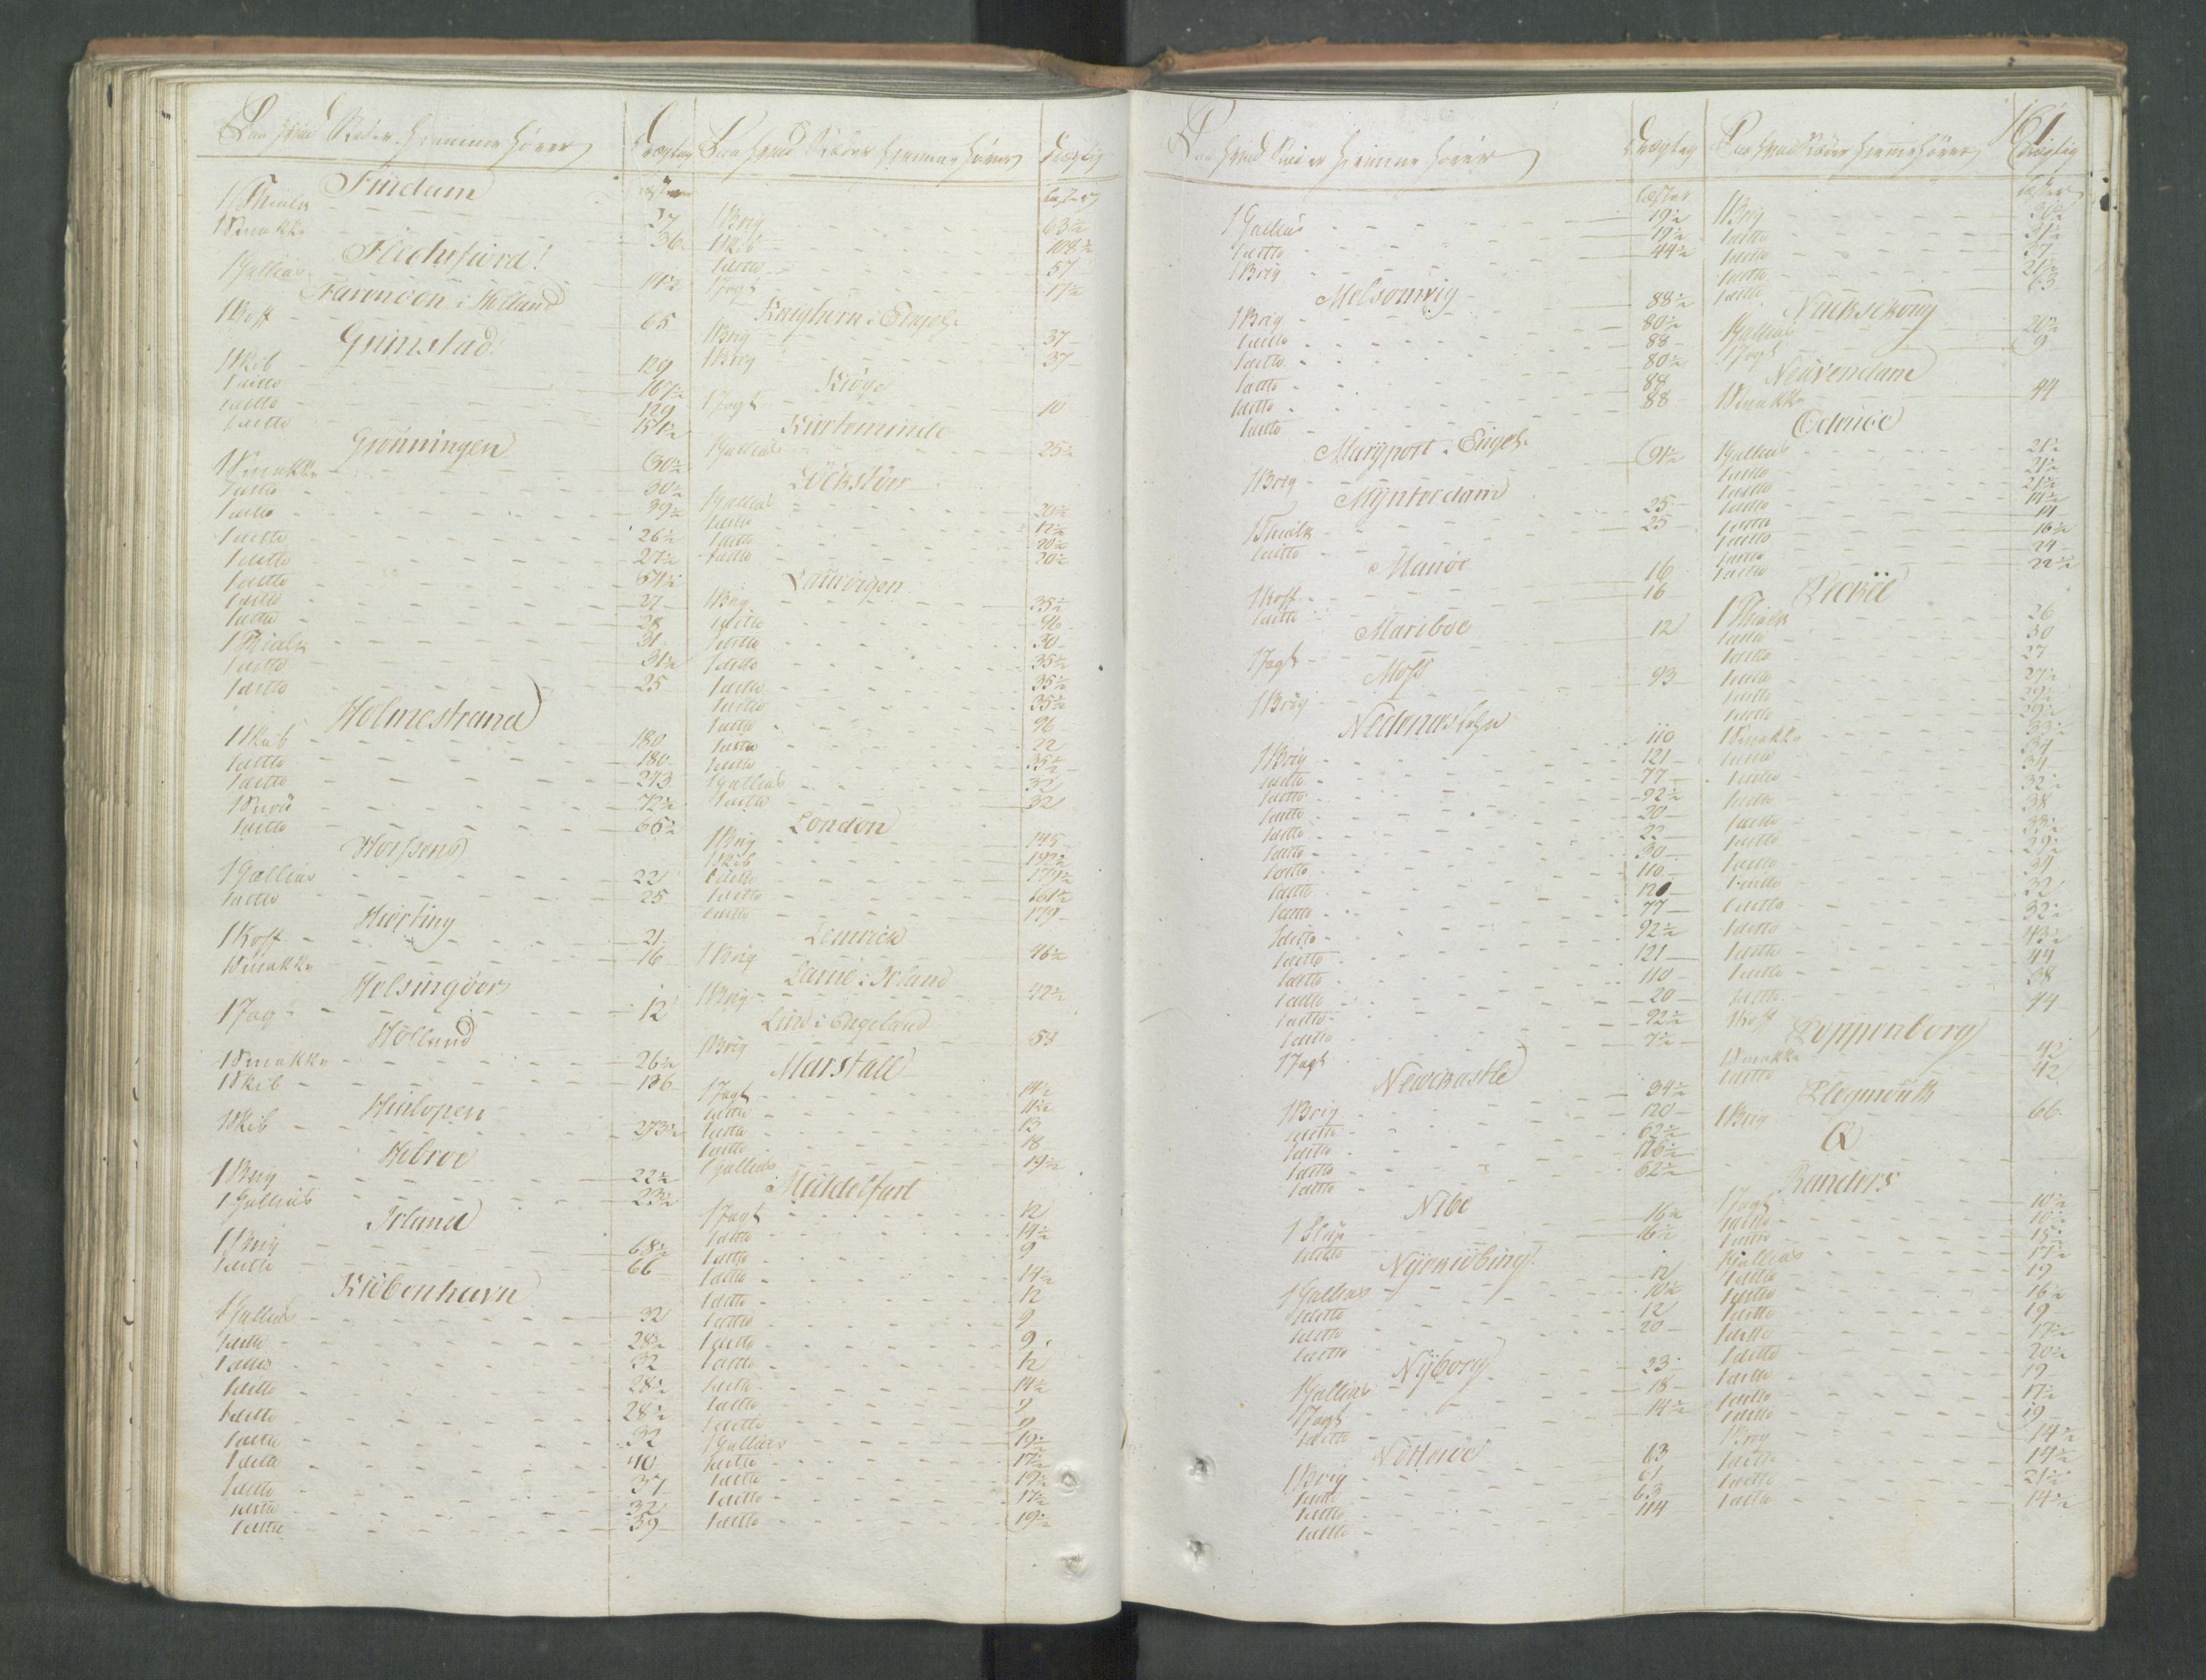 161
Paa hvad Stæder hiemmehører Drægtig
Læster
Findam
1 Thialk 27
1 Smakke 36
Flechefiord
1 Gallias 11½
Farmoen i Holland
1 Koff 65
Grimstad
1 Skib 129
1 ditto 167½
1 ditto 129
1 ditto 151½
Grönningen
1 Smakke 30½
1 ditto 30½
1 ditto 39½
1 ditto 26½
1 ditto 27½
1 ditto 54½
1 ditto 27
1 ditto 28
1 Thialk 31
1 ditto 31½
1 ditto 25
Holmestrand
1 Skib 180
1 ditto 180
1 ditto 273
1 Snou 72½
1 ditto 65½
Horssens
1 Gallias 22
1 ditto 25
Hierting
1 Koff 21
1 Smakke 16
Helsingöer
1 Jagt 12
Holland
1 Smakke 26½
1 Skib 136
Hinlopen
1 Skib 273½
Hobroe
1 Brig 22½
1 Gallias 23½
Irland
1 Brig 68½
1 ditto 66
Kiöbenhavn
1 Gallias 32
1 ditto 28½
1 ditto 32
1 ditto 28½
1 ditto 28½
1 ditto 32
1 ditto 40
1 ditto 37
1 ditto 32
1 ditto 59
Paa hvad Stæder hiemmehører Drægtig
Læster
1 Brig 63½
1 Skib 108½
1 ditto 57
1 Jagt 17½
Kneghern i Engel.
1 Brig 37
1 Brig 37
Kiöge
1 Jagt 10
Kierteminde
1 Gallias 25½
Löckstöer
1 Gallias 20½
1 ditto 12½
1 ditto 20½
1 ditto 20½
Laurvigen
1 Brig 35½
1 ditto 96
1 ditto 30
1 ditto 35½
1 ditto 35½
1 ditto 35½
1 ditto 96
1 ditto 22
1 ditto 35½
1 Gallias 32
1 ditto 32
London
1 Brig 145
1 Skib 192½
1 ditto 179½
1 ditto 161½
1 ditto 179
Lemvick
1 Brig 46½
Larne i Irland
1 Brig 42½
Lind i Engeland
1 Brig 58
Marstall
1 Jagt 14½
1 ditto 11½
1 ditto 13
1 ditto 18
1 Gallias 14½
Middelfart
1 Jagt 12
1 ditto 14½
1 ditto 9
1 ditto 14½
1 ditto 12
1 ditto 9
1 ditto 9
1 ditto 12
1 ditto 14½
1 ditto 9
1 ditto 9
1 Gallias 19½
1 ditto 17½
1 ditto 19½
1 ditto 17½
1 ditto 19½
Paa hvad Stæder hiemmehører Drægtig
Læster
1 Gallias 19½
1 ditto 19½
1 Brig 44½
Melsomvig
1 Brig 88½
1 ditto 80½
1 ditto 88
1 ditto 80½
1 ditto 88
1 ditto 88
Maryport i Engel.
1 Brig 91½
Myntordam
1 Thialk 25
1 ditto 25
Manöe
1 Koff 16
1 ditto 16
Mariboe
1 Jagt 12
Moss
1 Brig 93
Nedenæs Lehn
1 Brig 110
1 ditto 121
1 ditto 77
1 ditto 92½
1 ditto 20
1 ditto 22
1 ditto 30
1 ditto 110
1 ditto 120
1 ditto 77
1 ditto 92½
1 ditto 121
1 ditto 110
1 ditto 20
1 ditto 92½
1 Jagt 7½
Newcastle
1 Brig 34½
1 ditto 120
1 ditto 62½
1 ditto 116½
1 ditto 62½
Nibe
1 Slup 16½
1 ditto 16½
Nyekiöbing
1 Gallias 12
1 ditto 10½
1 ditto 12
1 ditto 20
Nyborg
1 Gallias 23
1 Jagt 18
1 ditto 14½
Nötteröe
1 Brig 63
1 ditto 61
1 ditto 63
1 ditto 114
Paa hvad Stæder hiemmehører Drægtig
Læster
1 Brig 30½
1 ditto 31½
1 ditto 37
1 ditto 21½
1 ditto 63
Nackschoug
1 Gallias 20½
1 Jagt 9
Neuvendam
1 Smakke 44
Odense
1 Gallias 21½
1 ditto 21½
1 ditto 21½
1 ditto 14½
1 ditto 14
1 ditto 16½
1 ditto 24
1 ditto 22½
1 Thialk 26
1 ditto 30
1 ditto 27
1 ditto 27½
1 ditto 29½
1 ditto 39½
1 Smakke 33½
1 ditto 34
1 ditto 34
1 ditto 32½
1 ditto 38
1 ditto 38½
1 ditto 29½
1 ditto 34
1 ditto 32
1 ditto 32½
1 ditto 43½
1 ditto 44
1 ditto 38
1 Koff 44
Peppenborg
1 Smakke 42
1 ditto 42
Plegmouth
1 Brig 66
Q
Randers
1 Jagt 10½
1 ditto 10½
1 ditto 15½
1 Gallias 17½
1 ditto 19
1 ditto 16½
1 ditto 19
1 ditto 17½
1 ditto 20½
1 ditto 19
1 ditto 17½
1 ditto 19
1 Brig 14½
1 ditto 14½
1 ditto 21½
1 ditto 14½